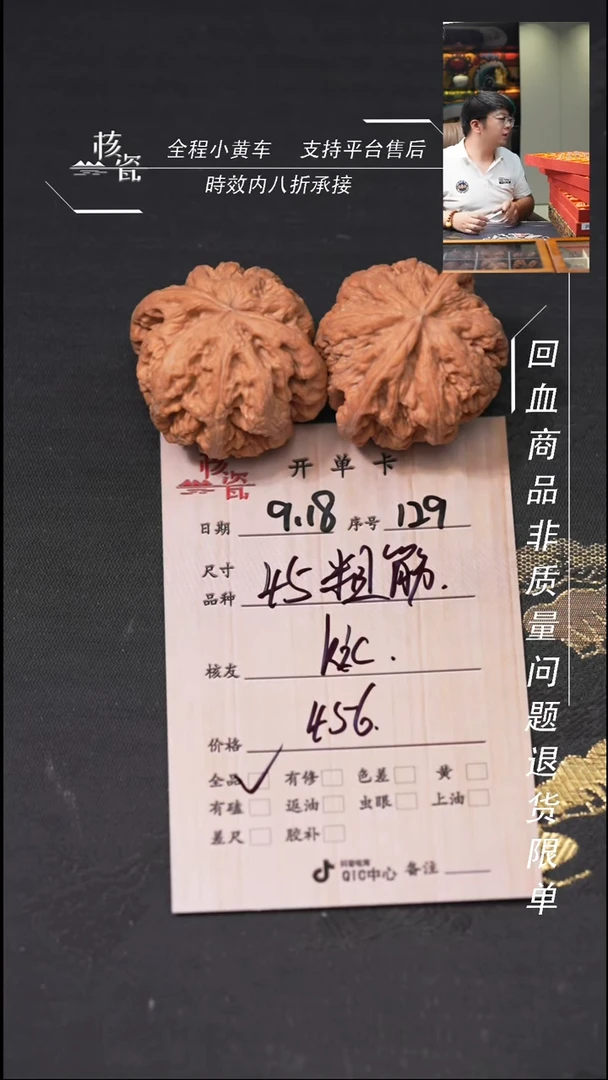 核瓷
全程小黄车 支持平台售后
時效内八折承接
回血商品非质量问题退货限单
核瓷
开单卡
日期 9.18 序号 129
尺寸
品种 45粗筋.
核友 kzc.
价格 456.
全品 有修 色差 黄
有磕 返油 虫眼 上油
差尺 胶补
抖音电商
QIC中心 备注